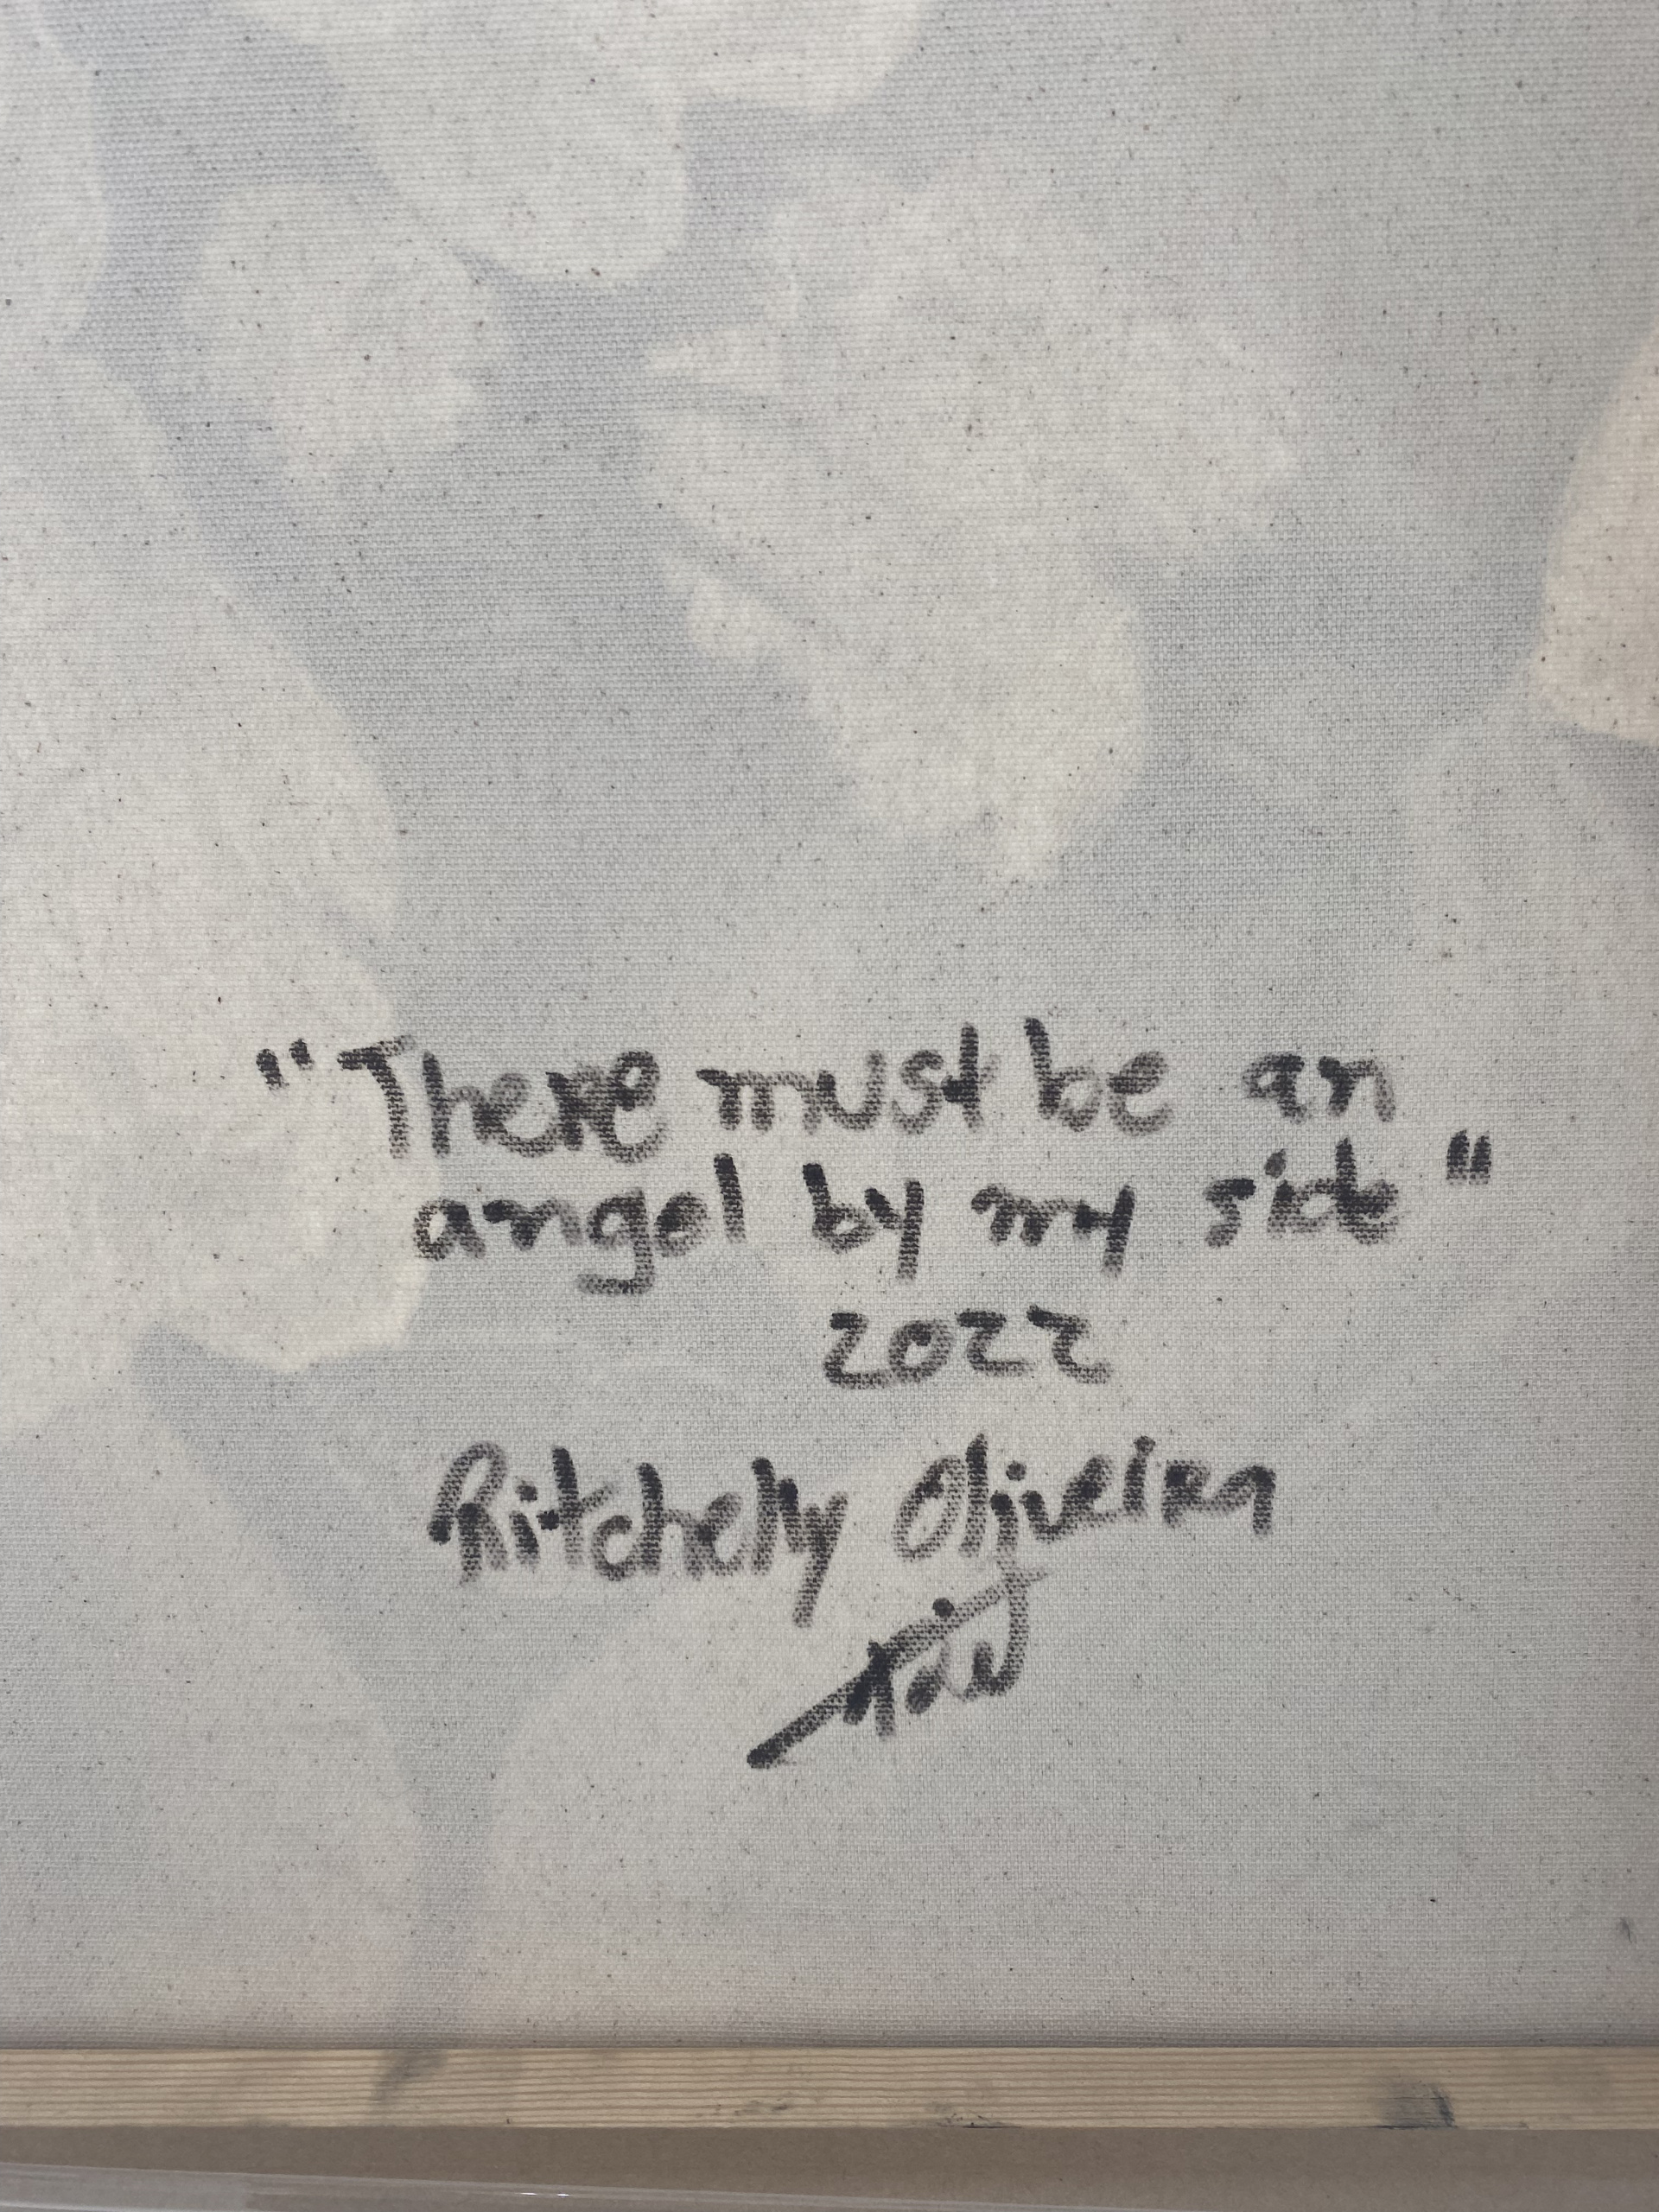 "There must be an
angel by my side"
2022
Ritchelly Oliveira